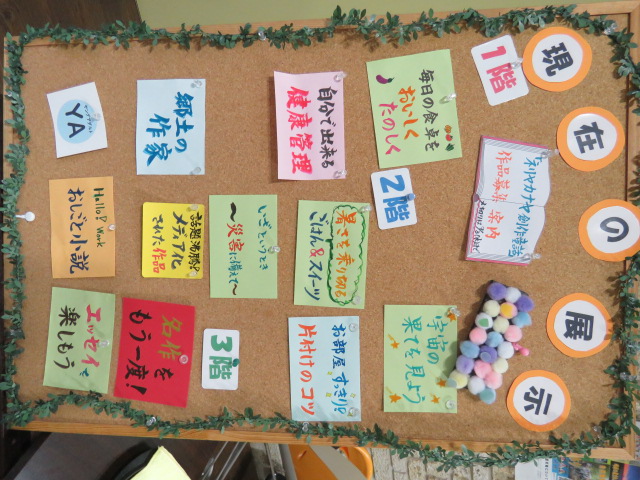 現在の展示
1階
毎日の食卓を
おいしく
たのしく
自分で出来る
健康管理
郷土の
作家
ヤングアダルト
YA
ネリヤカナヤ創作童話
作品募集 案内
2階
暑さを乗り切る
ごはん&スイーツ
いざというとき
～災害に備えて～
話題沸騰!?
メディア化
された作品
Hello? Work
おしごと小説
宇宙の
果てを見よう
お部屋すっきり!?
片付けのコツ
3階
名作を
もう一度!
エッセイを
楽しもう